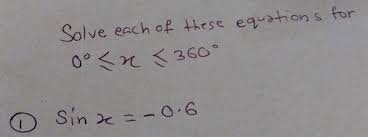 Solve each of these equations for
0° ⩽ x ⩽ 360°
① Sin x = -0.6